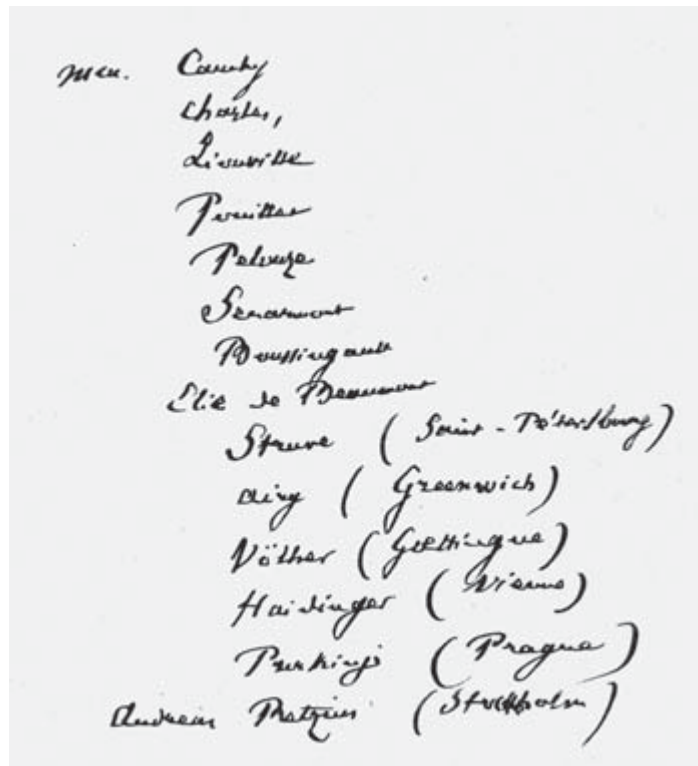 MM. Cauchy
Chasles,
Liouville
Pouillet
Pelouze
Senarmont
Boussingault
Elie de Beaumont
Struve (Saint-Pétersbourg)
Airy (Greenwich)
(Goettingue)
Haidinger (Vienne)
Purkinje (Prague)
Andreas Retzius (Stockholm)